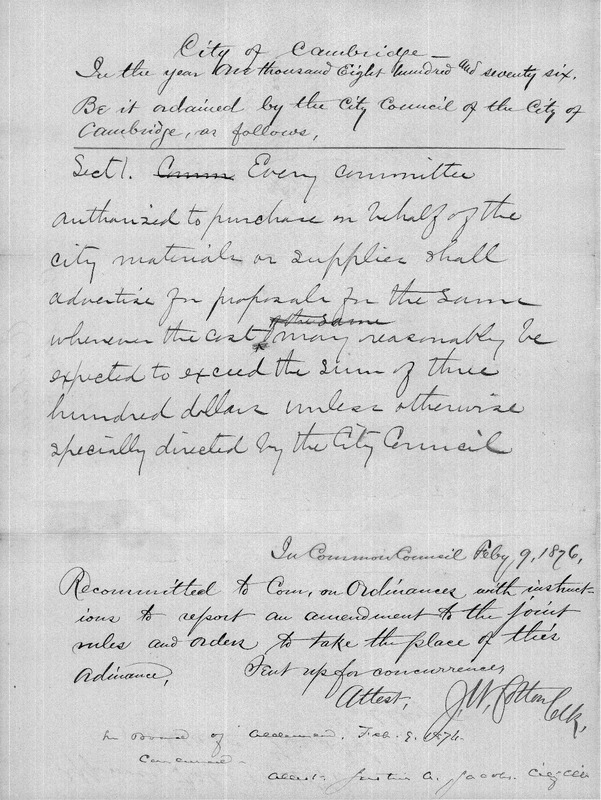 City of Cambridge —
In the year One thousand Eight hundred and seventy six.
Be it ordained by the City Council of the City of
Cambridge, as follows,
Sect 1. Comm Every committee
authorized to purchase on behalf of the
city materials or supplies shall
advertise for proposals for the same
of the same
whenever the cost may reasonably be
expected to exceed the sum of three
hundred dollars unless otherwise
specially directed by the City Council
In Common Council Feby 9, 1876,
Recommitted to Com, on Ordinances with instruct-
ions to report an amendment to the joint
rules and orders to take the place of this
Ordinance, Sent up for concurrence,
Attest, J.W. Cotton Clk,
In Board of Aldermen, Feb. 9. 1876.
Concurred —
Attest. Justin A. Jacobs. City Clk